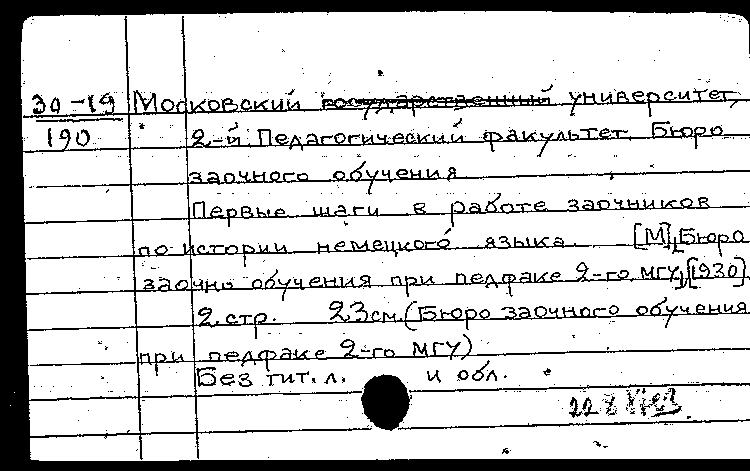 30-19 Московский государственный университет,
190 2-й Педагогический факультет. Бюро
заочного обучения
Первые шаги в работе заочников
по истории немецкого языка. [М], Бюро
заочн. обучения при педфаке 2-го МГУ, [1930]
2 стр. 23 см. (Бюро заочного обучения
при педфаке 2-го МГУ)
Без тит. л. и обл.